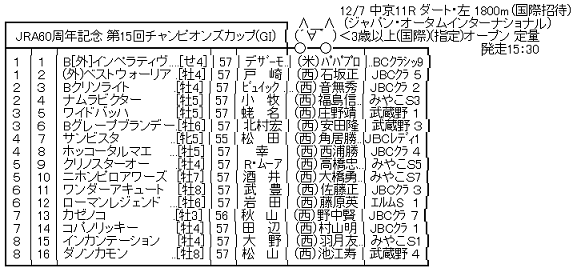 12/7 中京11R ダート・左 1800m (国際招待)
(ジャパン・オータムインターナショナル)
JRA60周年記念 第15回チャンピオンズカップ(GI)
(´∀`)
<3歳以上(国際)(指定)オープン 定量
発走15:30
1 1 B[外]インペラティヴ....[せ4] 57 デザーモ.. (米)パパプロ BCクラシック9
1 2 (外)ベストウォーリア [牡4] 57 戸 崎 (西)石坂正 JBCクラ 5
2 3 Bクリソライト [牡4] 57 ビュイック.. (西)音無秀 JBCクラ 2
2 4 ナムラビクター [牡5] 57 小 牧 (西)福島信.. みやこS3
3 5 ワイドバッハ [牡5] 57 蛯 名 (西)庄野靖 武蔵野 1
3 6 Bグレープブランデー [牡6] 57 北村宏 (西)安田隆 武蔵野 3
4 7 サンビスタ [牝5] 55 松 田 (西)角居勝.. JBCレディ1
4 8 ホッコータルマエ [牡5] 57 幸 (西)西浦勝 JBCクラ 4
5 9 クリノスターオー [牡4] 57 R・ムーア (西)高橋忠 みやこS5
5 10 ニホンピロアワーズ [牡7] 57 酒 井 (西)大橋勇.. みやこS7
6 11 ワンダーアキュート [牡8] 57 武 豊 (西)佐藤正 JBCクラ 3
6 12 ローマンレジェンド [牡6] 57 岩 田 (西)藤原英 エルムS 1
7 13 カゼノコ [牡3] 56 秋 山 (西)野中賢 JBCクラ 7
7 14 コパノリッキー [牡4] 57 田 辺 (西)村山明 JBCクラ 1
8 15 インカンテーション [牡4] 57 大 野 (西)羽月友.. みやこS1
8 16 ダノンカモン [牡8] 57 松 山 (西)池江寿 武蔵野 4